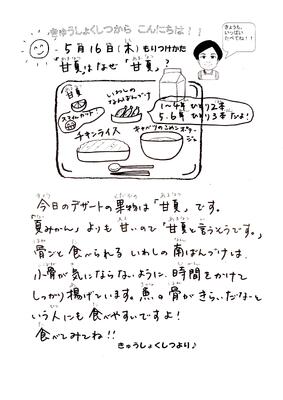 きゅうしょくしつから こんにちは!!
きょうも、
いっぱい
たべてね!!
5月16日(木)もりつけかた
"甘夏はなぜ"甘夏"?
甘夏
スマイルカット
いわしの
なんばんづけ
1〜4年 ひとり2本
5.6年 ひとり3本だよ!
チキンライス
キャベツのこめこポタージュ
今日のデザートの果物は「甘夏」です。
夏みかん」よりも甘いので「甘夏と言うそうです。」
骨ごと食べられるいわしの南ばんづけは、
小骨が気にならないように、時間をかけて
しっかり揚げています。魚の骨がきらいだな〜と
いう人にも食べやすいですよ!
食べてみてね!!
きゅうしょくしつより♪